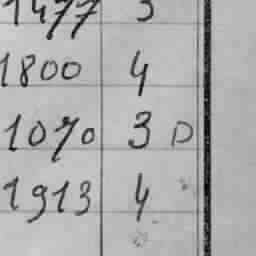 1477 3
1800 4
1070 3 D
1913 4